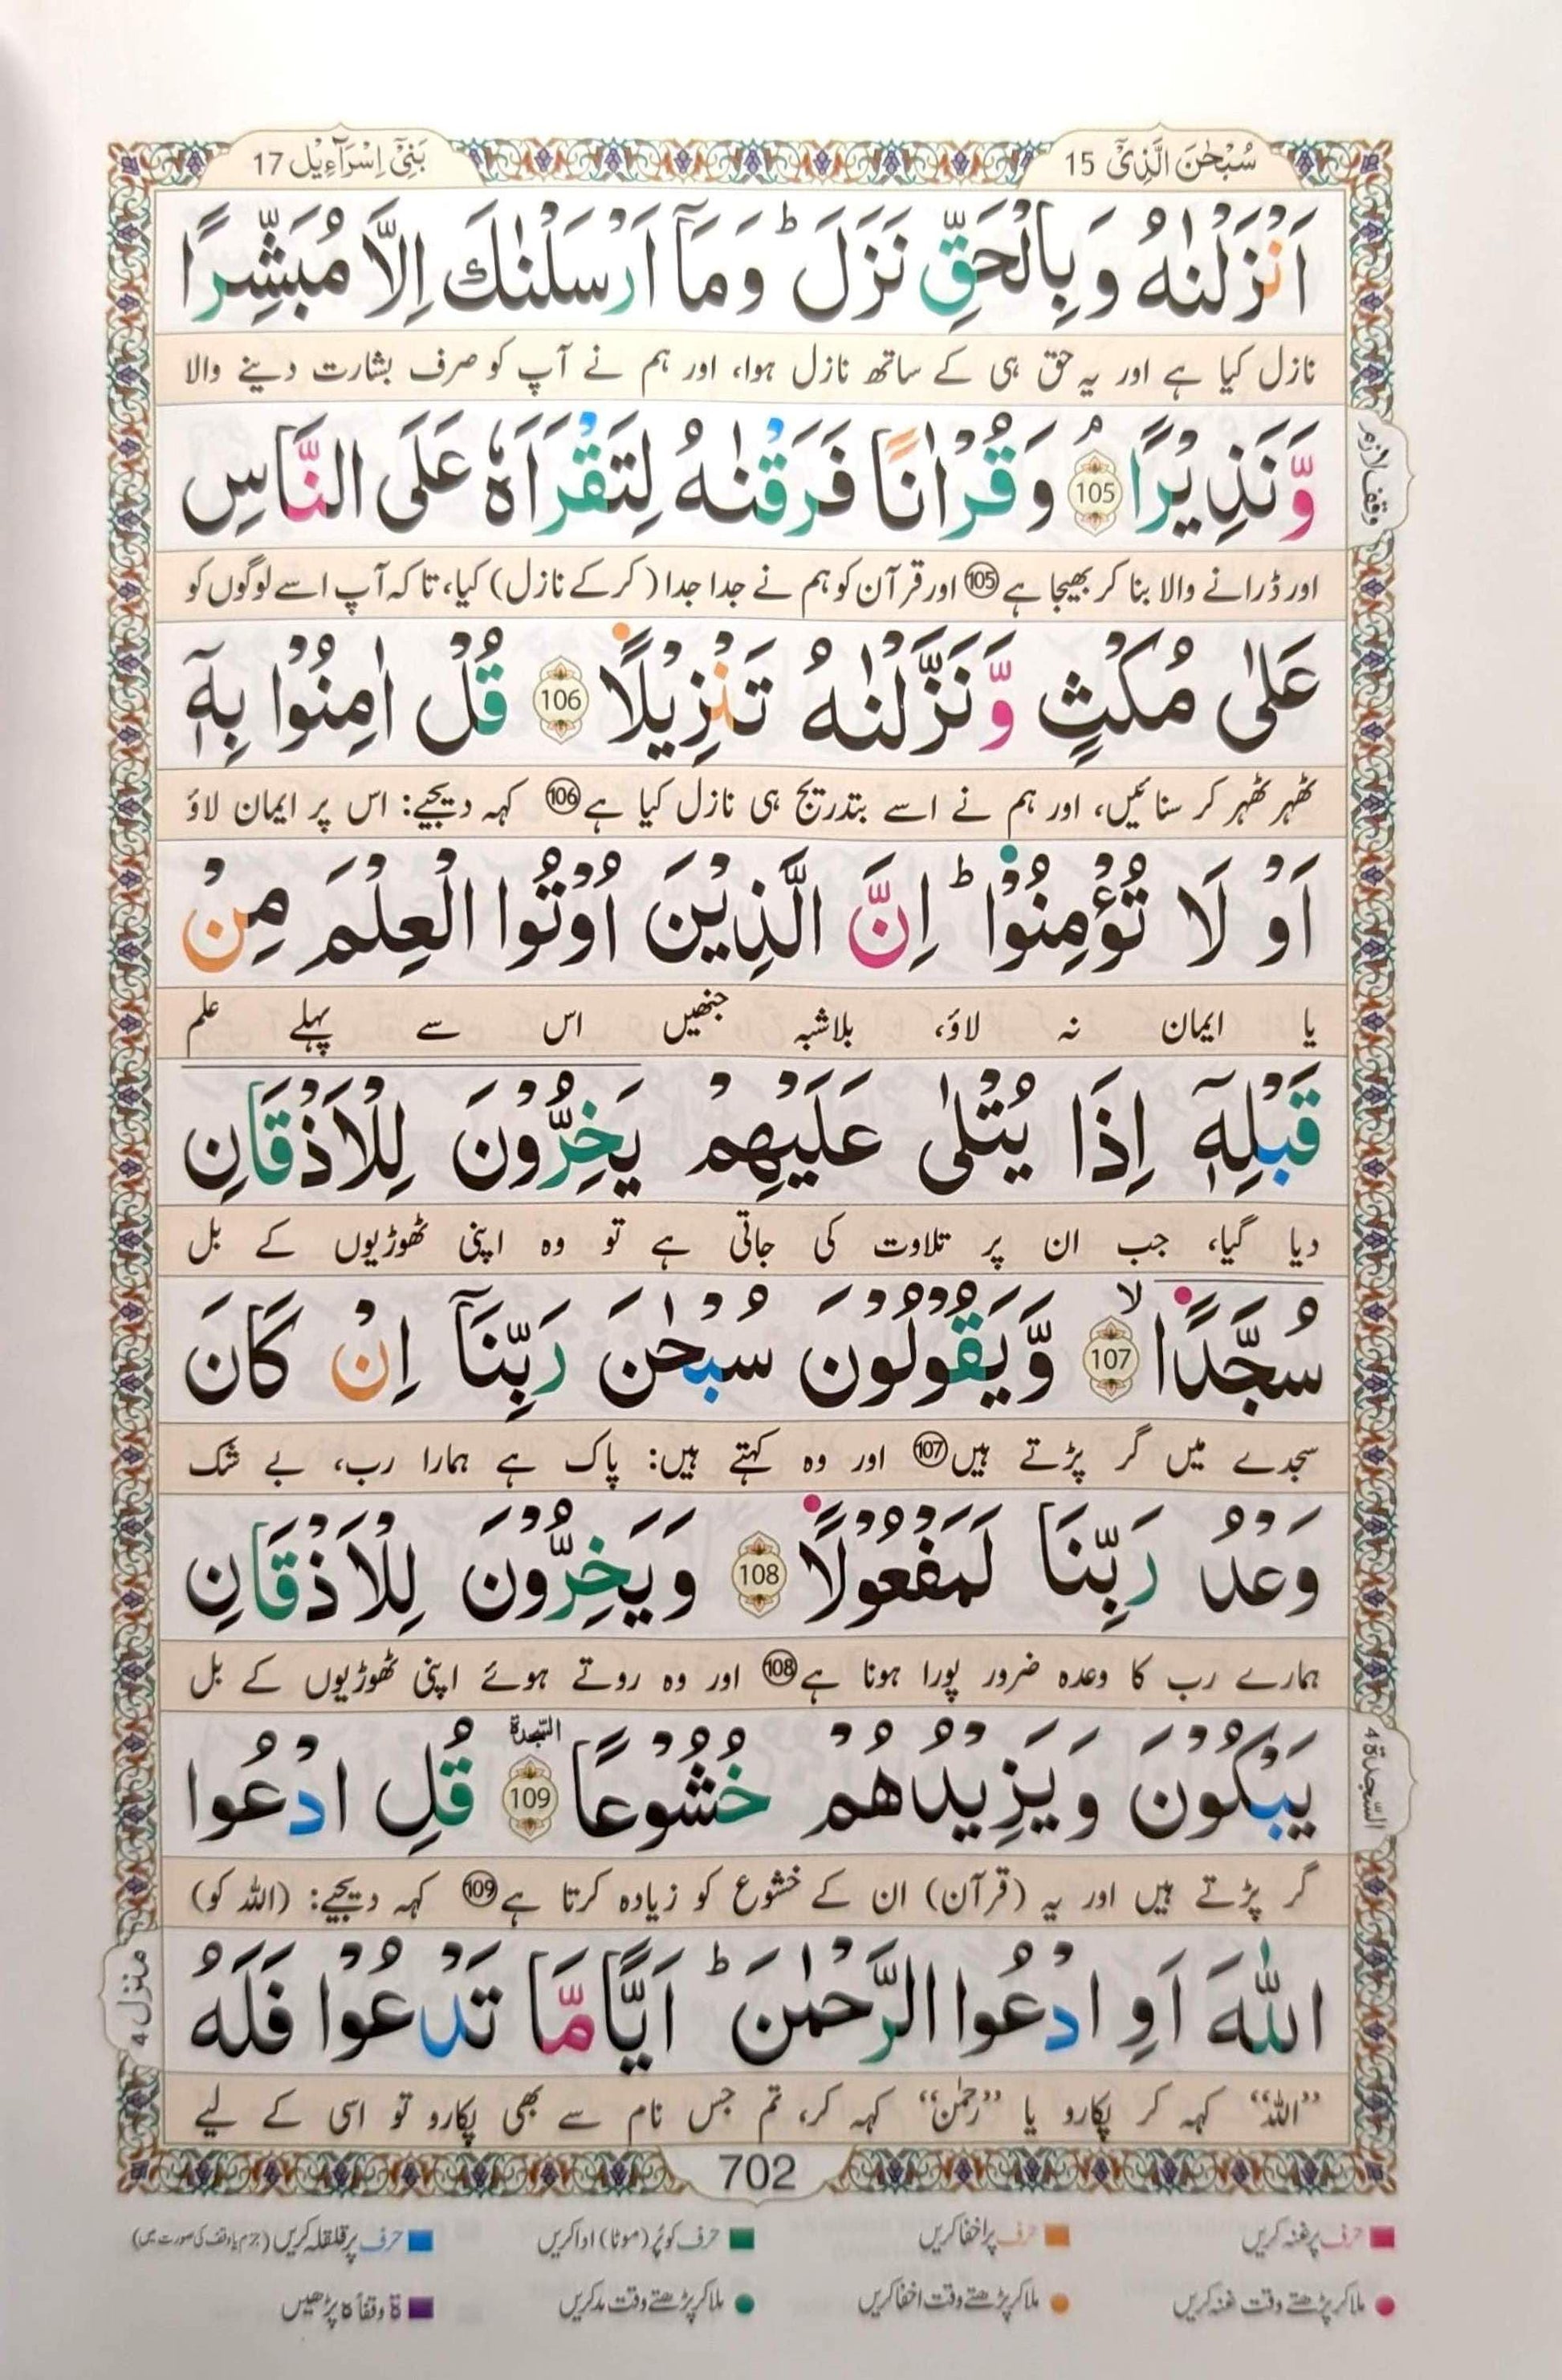 سُبْحٰنَ الَّذِیْۤ 15
بَنِیْۤ اِسْرَآءِیْل 17
اَنْزَلْنٰهُ وَبِالْحَقِّ نَزَلَ ؕ وَمَاۤ اَرْسَلْنٰكَ اِلَّا مُبَشِّرًا
نازل کیا ہے اور یہ حق ہی کے ساتھ نازل ہوا، اور ہم نے آپ کو صرف بشارت دینے والا
وَّنَذِیْرًا ۘ 105 وَقُرْاٰنًا فَرَقْنٰهُ لِتَقْرَاَهٗ عَلَی النَّاسِ
وقف لازم
اور ڈرانے والا بنا کر بھیجا ہے 105 اور قرآن کو ہم نے جدا جدا (کرکے نازل) کیا، تاکہ آپ اسے لوگوں کو
عَلٰی مُكْثٍ وَّنَزَّلْنٰهُ تَنْزِیْلًا 106 قُلْ اٰمِنُوْا بِهٖۤ
ٹھہر ٹھہر کر سنائیں، اور ہم نے اسے بتدریج ہی نازل کیا ہے 106 کہہ دیجیے: اس پر ایمان لاؤ
اَوْ لَا تُؤْمِنُوْا ؕ اِنَّ الَّذِیْنَ اُوْتُوا الْعِلْمَ مِنْ
یا ایمان نہ لاؤ، بلاشبہ جنھیں اس سے پہلے علم
قَبْلِهٖۤ اِذَا یُتْلٰی عَلَیْهِمْ یَخِرُّوْنَ لِلْاَذْقَانِ
دیا گیا، جب ان پر تلاوت کی جاتی ہے تو وہ اپنی ٹھوڑیوں کے بل
سُجَّدًا ۙ 107 وَّیَقُوْلُوْنَ سُبْحٰنَ رَبِّنَاۤ اِنْ كَانَ
سجدے میں گر پڑتے ہیں 107 اور وہ کہتے ہیں: پاک ہے ہمارا رب، بے شک
وَعْدُ رَبِّنَا لَمَفْعُوْلًا 108 وَیَخِرُّوْنَ لِلْاَذْقَانِ
ہمارے رب کا وعدہ ضرور پورا ہونا ہے 108 اور وہ روتے ہوئے اپنی ٹھوڑیوں کے بل
یَبْكُوْنَ وَیَزِیْدُهُمْ خُشُوْعًا السّجدة 109 قُلِ ادْعُوا
السّجدة ۴
گر پڑتے ہیں اور یہ (قرآن) ان کے خشوع کو زیادہ کرتا ہے 109 کہہ دیجیے: (اللہ کو)
اللّٰهَ اَوِ ادْعُوا الرَّحْمٰنَ ؕ اَیًّا مَّا تَدْعُوْا فَلَهُ
منزل ۴
”اللہ“ کہہ کر پکارو یا ”رحمٰن“ کہہ کر، تم جس نام سے بھی پکارو تو اسی کے لیے
702
حرف پر غنہ کریں
حرف پر اخفا کریں
حرف کو پُر (موٹا) ادا کریں
حرف پر قلقلہ کریں (جزم یا وقف کی صورت میں)
ملا کر پڑھتے وقت غنہ کریں
ملا کر پڑھتے وقت اخفا کریں
ملا کر پڑھتے وقت مد کریں
ة وقفاً ہ پڑھیں